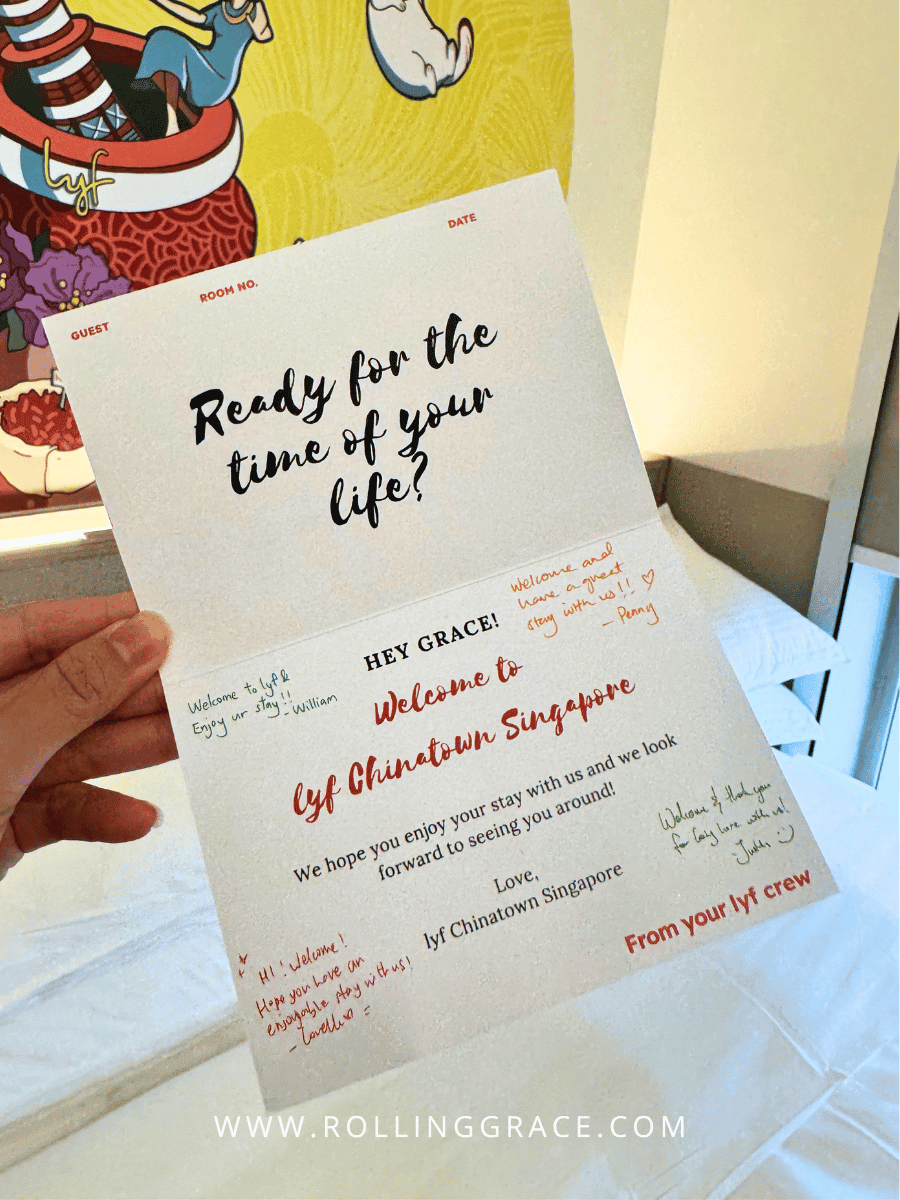 lyf
GUEST
ROOM NO.
DATE
Ready for the
time of your
life?
Welcome and
have a great
stay with us!! ♡
- Penny
HEY GRACE!
Welcome to lyf &
Enjoy ur stay!!
- William
Welcome to
lyf Chinatown Singapore
We hope you enjoy your stay with us and we look
forward to seeing you around!
Welcome & thank you
for being here with us!
:)
Love,
lyf Chinatown Singapore
From your lyf crew
HI! Welcome!
Hope you have an
enjoyable stay with us!
WWW.ROLLINGGRACE.COM